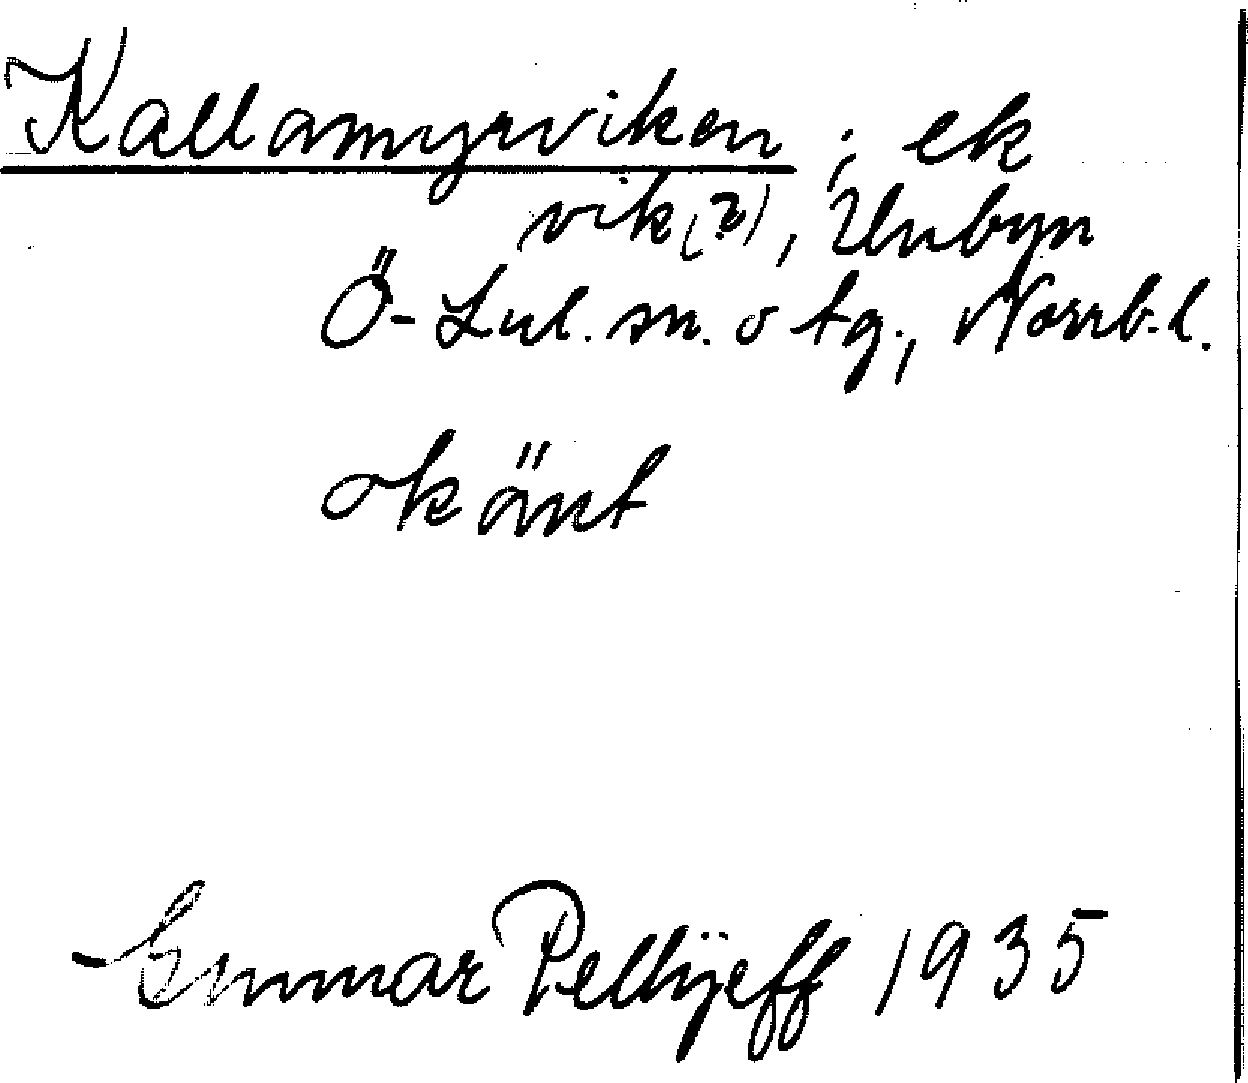 Kallamyrviken ; ek
vik (?), Unbyn
Ö-Lul. sn. o tg., Norrb.l.
okänt
Gunnar Pellijeff 1935